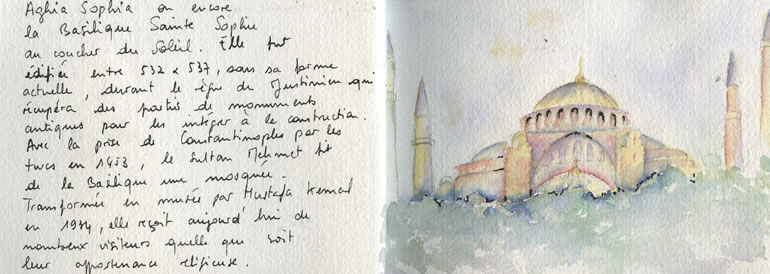 Aghia Sophia ou encore
la Basilique Sainte Sophie
au coucher du Soleil. Elle fut
édifiée entre 532 & 537, sous sa forme
actuelle, durant le règne de Justinien qui
récupéra des parties de monuments
antiques pour les intégrer à la construction.
Avec la prise de Constantinoples par les
turcs en 1453, le Sultan Mehmet fit
de la Basilique une mosquée.
Transformée en musée par Mustafa Kemal
en 1934, elle reçoit aujourd'hui de
nombreux visiteurs quelle que soit
leur appartenance religieuse.